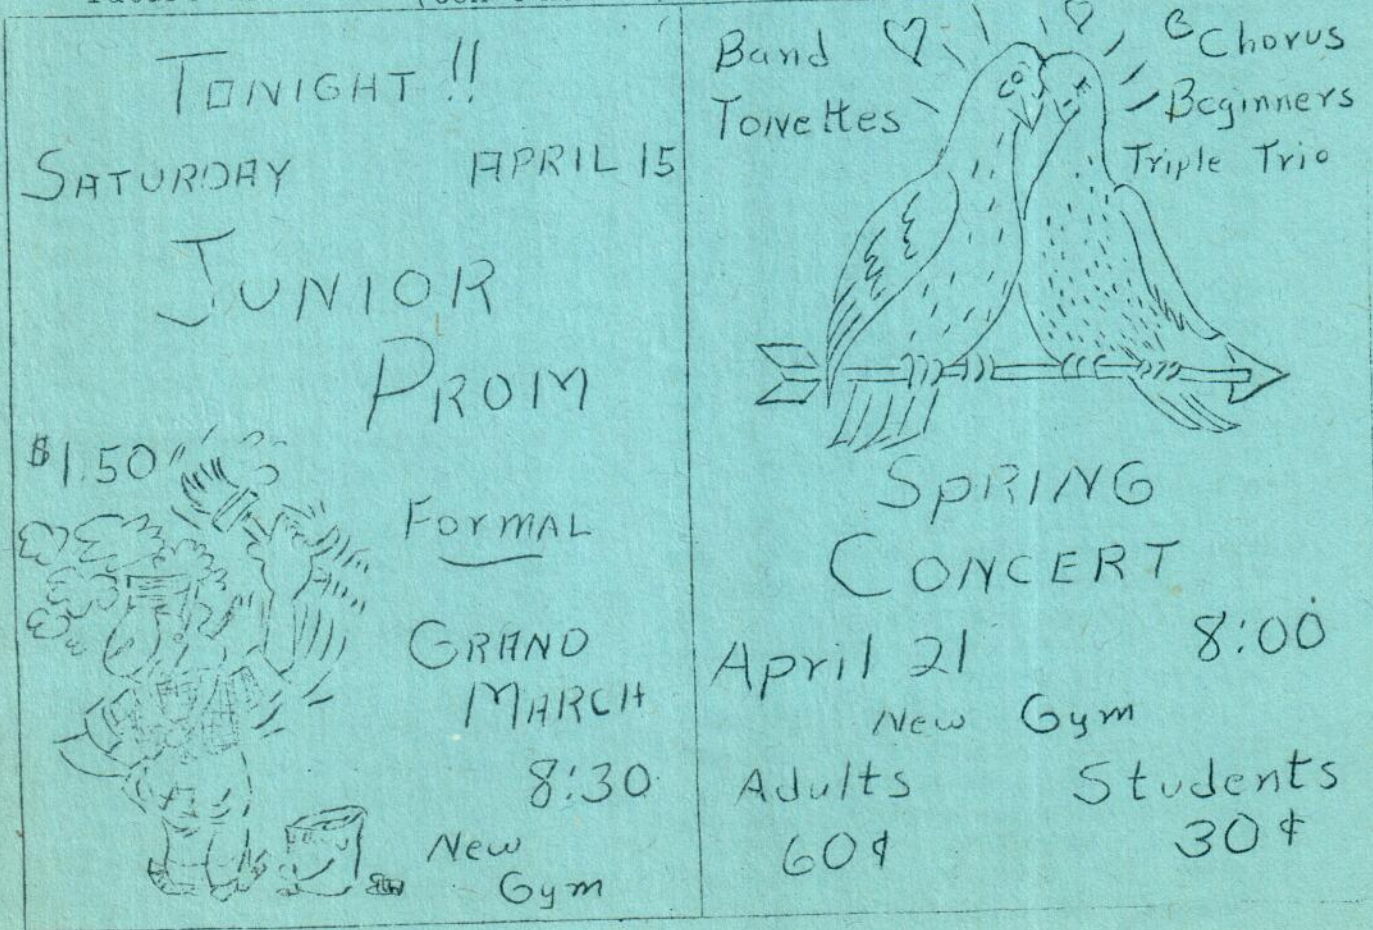 TONIGHT!!
SATURDAY APRIL 15
JUNIOR
PROM
$1.50
FORMAL
GRAND
MARCH
8:30
New
Gym
Band
Tonettes
Chorus
Beginners
Triple Trio
SPRING
CONCERT
April 21 8:00
New Gym
Adults Students
60¢ 30¢